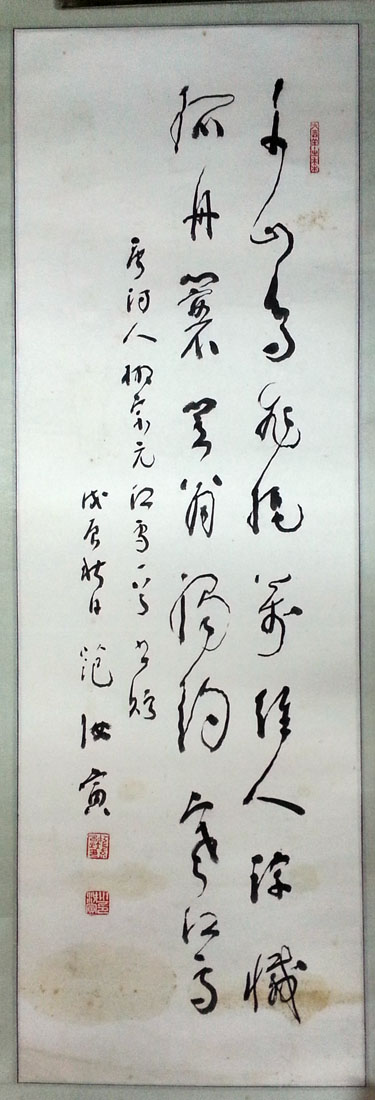 千山鳥飛絕萬徑人踪滅
孤舟蓑笠翁獨釣寒江雪
唐詩人柳宗元江雪一首
戊辰秋日范汝寅